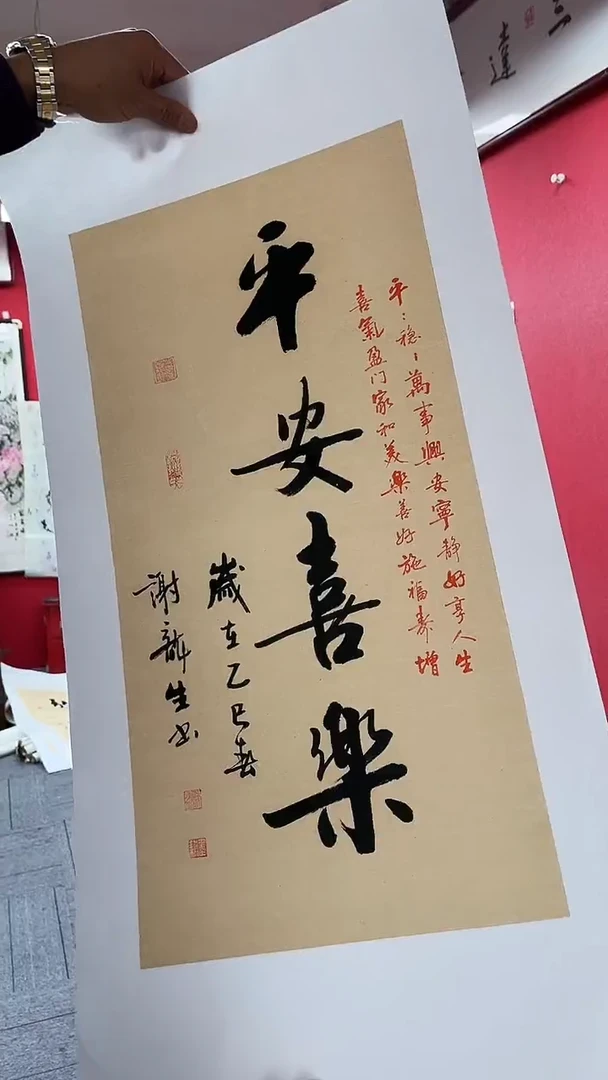 平安喜樂
平：穩、萬事興安寧静好享人生
喜氣盈门家和美樂善好施福寿增
歲在乙巳春
謝新生书
達